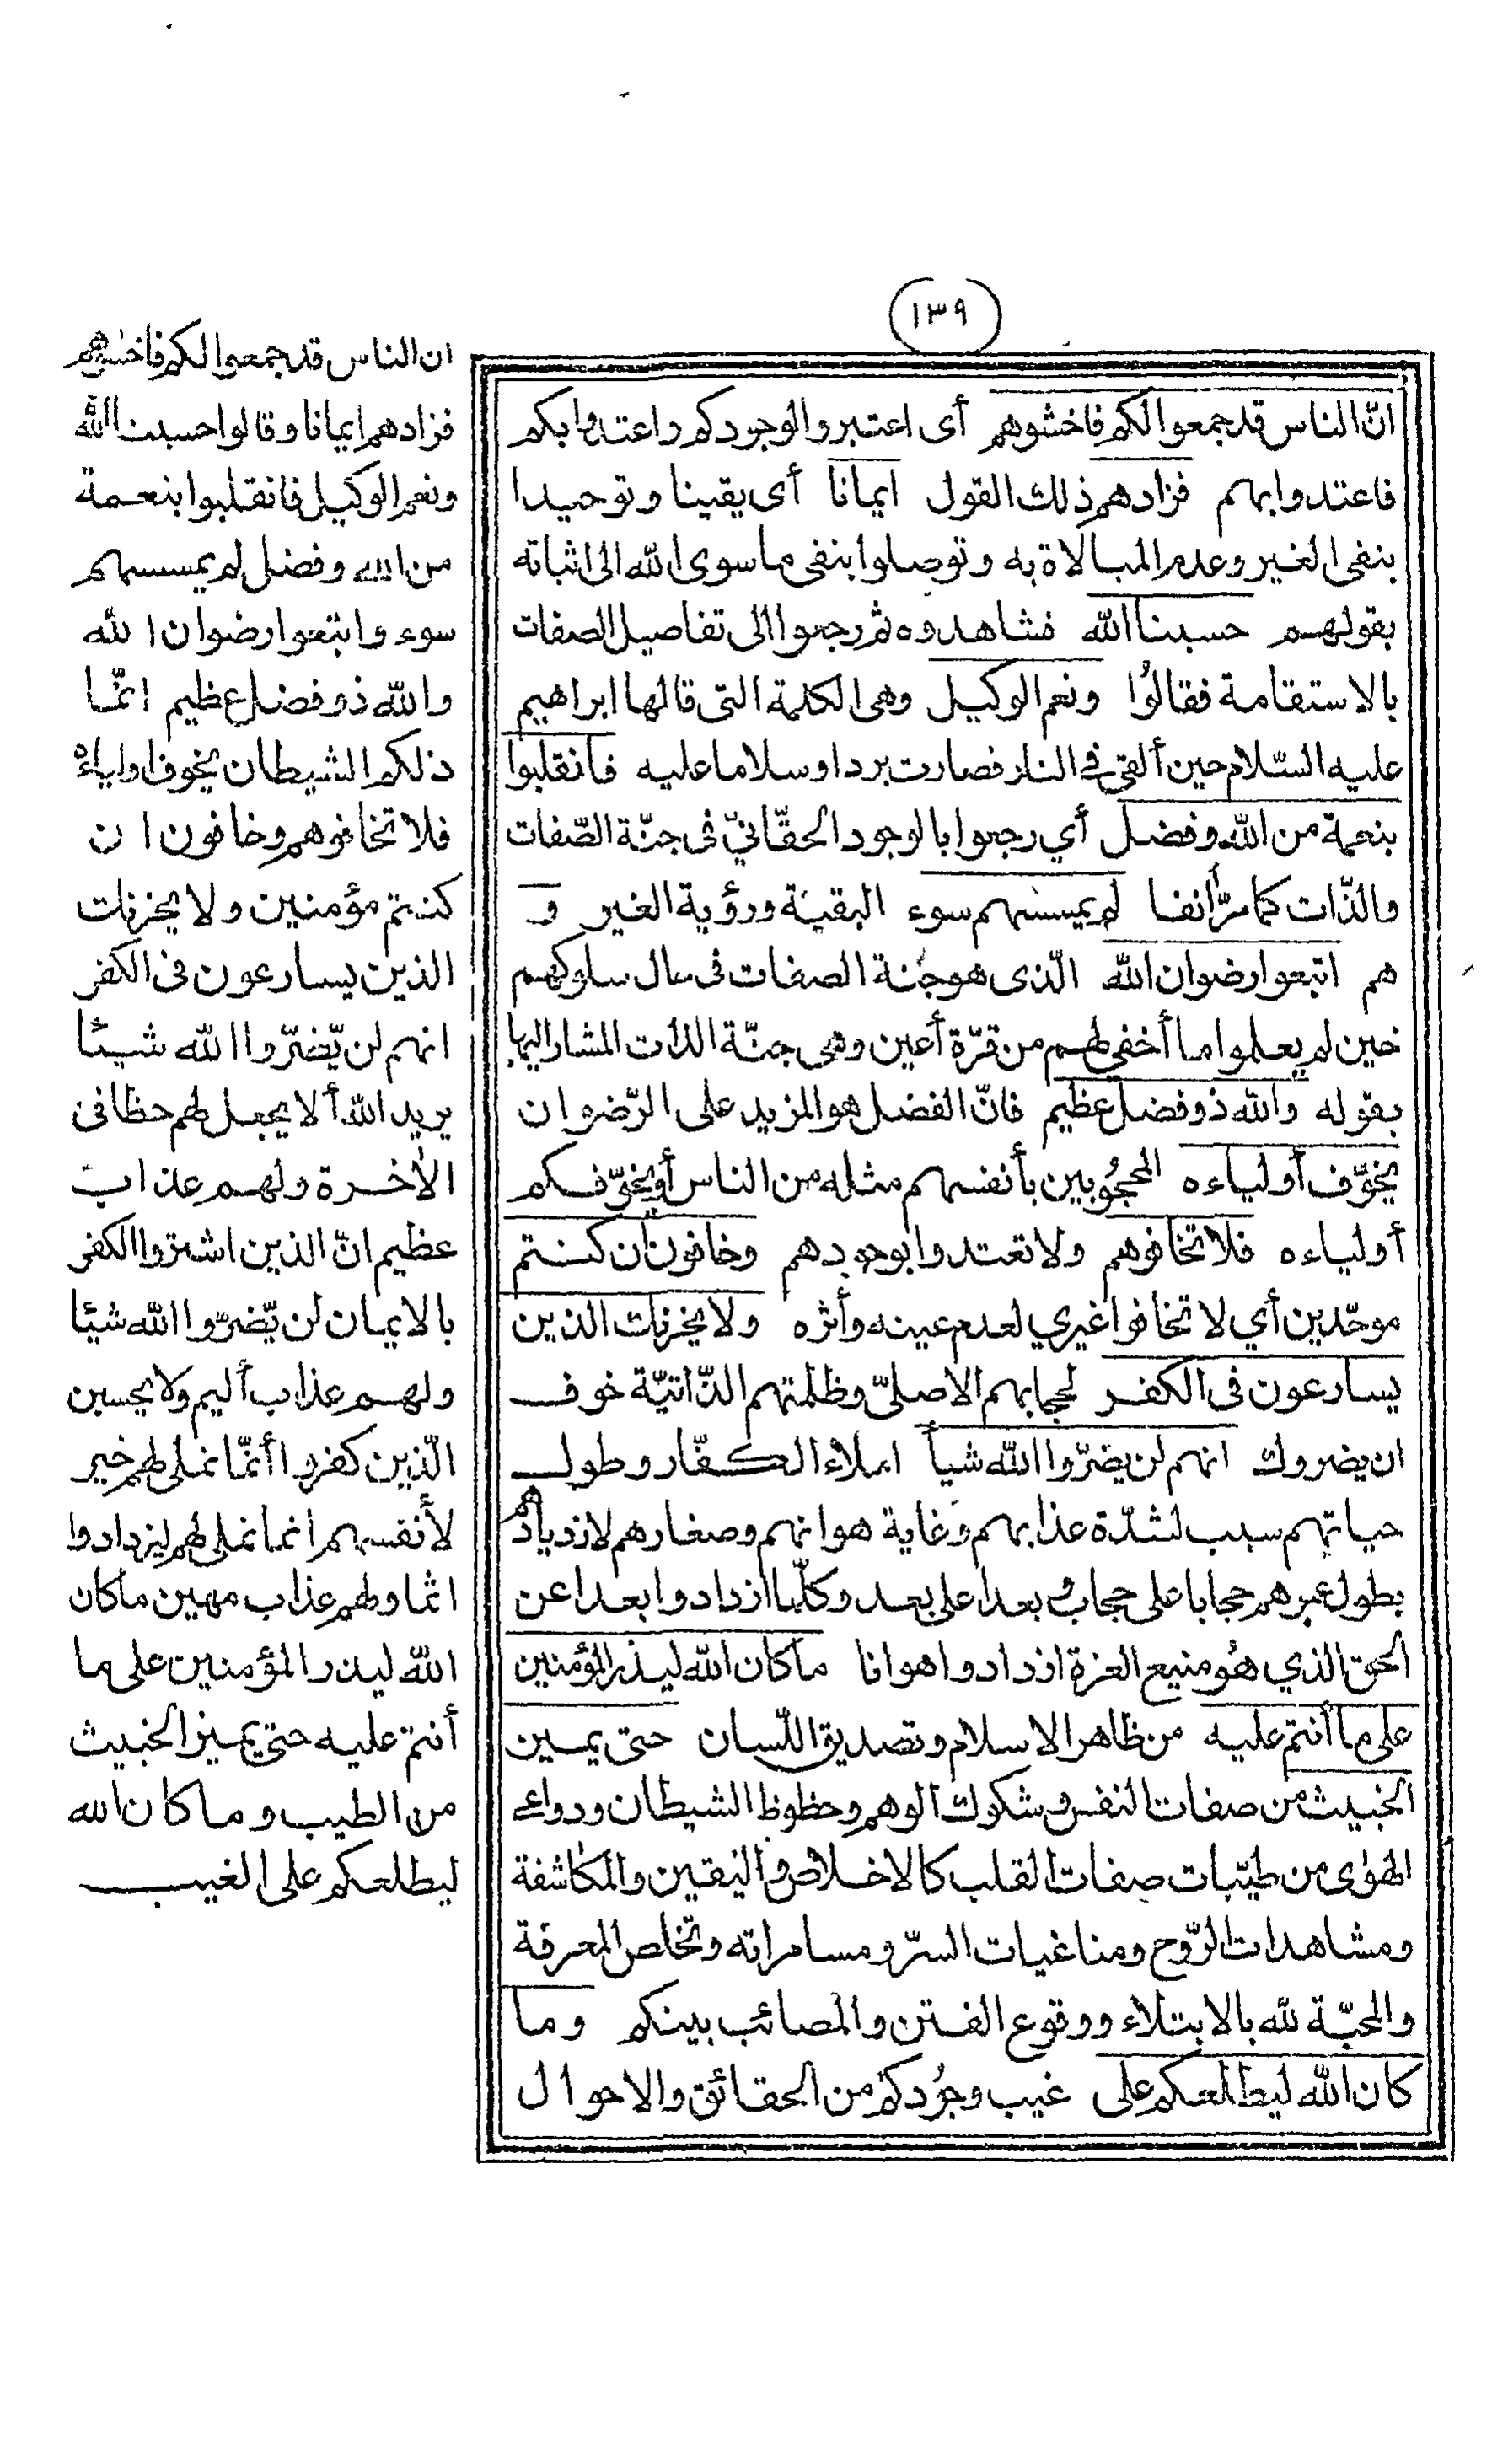 ١٣٩
انّ الناس قد جمعوا لكم فاخشوهم أى اعتبروا لوجودكم واعتدوا بكم
فاعتدوا بهم فزادهم ذلك القول ايمانا أى يقينا وتوحيدا
بنفى الغير وعدم المبالاة به وتوصلوا بنفى ما سوى الله الى اثباته
بقولهم حسبنا الله فشاهدوه ثم رجعوا الى تفاصيل الصفات
بالاستقامة فقالوُا ونعم الوكيل وهى الكلمة التى قالها ابراهيم
عليه السّلام حين ألقى فى النار فصارت بردا وسلاما عليه فانقلبوا
بنعمة من الله وفضل أي رجعوا بالوجود الحقّانيّ فى جنّة الصّفات
والذّات كما مرّ أنفا لم يمسسهم سوء البقية ورؤية الغير و
هم اتبعوا رضوان الله الّذى هو جنة الصفات فى حال سلوكهم
حين لم يعلموا ما أخفي لهم من قرّة أعين وهى جنّة الذات المشار اليها
بقوله والله ذو فضل عظيم فانّ الفضل هو المزيد على الرّضوان
يخوّف أولياءه المحجُوبين بأنفسهم مثله من الناس أو يخوّفكم
أولياءه فلا تخافوهم ولا تعتدوا بوجودهم وخافون ان كنتم
موحّدين أي لا تخافوا غيري لعدم عينه وأثره ولا يحزنك الذين
يسارعون فى الكفر لحجابهم الاصليّ وظلمتهم الذّاتيّة خوف
ان يضروك انهم لن يضرّوا الله شيأ املاء الكفّار وطول
حياتهم سبب لشدّة عذابهم وغاية هوانهم وصغارهم لازديادهم
بطول عمرهم حجابا على حجاب وبعدا على بعد وكلّما ازدادوا بعدا عن
الحق الذي هُو منبع العزة ازدادوا هوانا ما كان الله ليذر المؤمنين
على ما أنتم عليه من ظاهر الاسلام وتصديق اللّسان حتى يميز
الخبيث من صفات النفس وشكوك الوهم وحظوظ الشيطان ودواعى
الهوٰى من طيّبات صفات القلب كالاخلاص واليقين والمكاشفة
ومشاهدات الرّوح ومناغيات السرّ ومسامراته وتخلص المعرفة
والمحبّة لله بالابتلاء ووقوع الفتن والمصائب بينكم وما
كان الله ليطلعكم على غيب وجوُدكم من الحقائق والاحوال
ان الناس قد جمعوا لكم فاخشوهم
فزادهم ايمانا وقالوا حسبنا الله
ونعم الوكيل فانقلبوا بنعمة
من الله وفضل لم يمسسهم
سوء واتبعوا رضوان الله
والله ذو فضل عظيم انّما
ذلكم الشيطان يخوف اولياءه
فلا تخافوهم وخافون ان
كنتم مؤمنين ولا يحزنك
الذين يسارعون فى الكفر
انهم لن يّضرّوا الله شيئا
يريد الله ألا يجعل لهم حظا فى
الأخرة ولهم عذاب
عظيم انّ الذين اشتروا الكفر
بالايمان لن يّضرّوا الله شيئا
ولهم عذاب أليم ولا يحسبن
الّذين كفروا أنّما نملى لهم خير
لأنفسهم انما نملى لهم ليزدادوا
اثما ولهم عذاب مهين ما كان
الله ليذر المؤمنين على ما
أنتم عليه حتى يميز الخبيث
من الطيب وما كان الله
ليطلعكم على الغيب